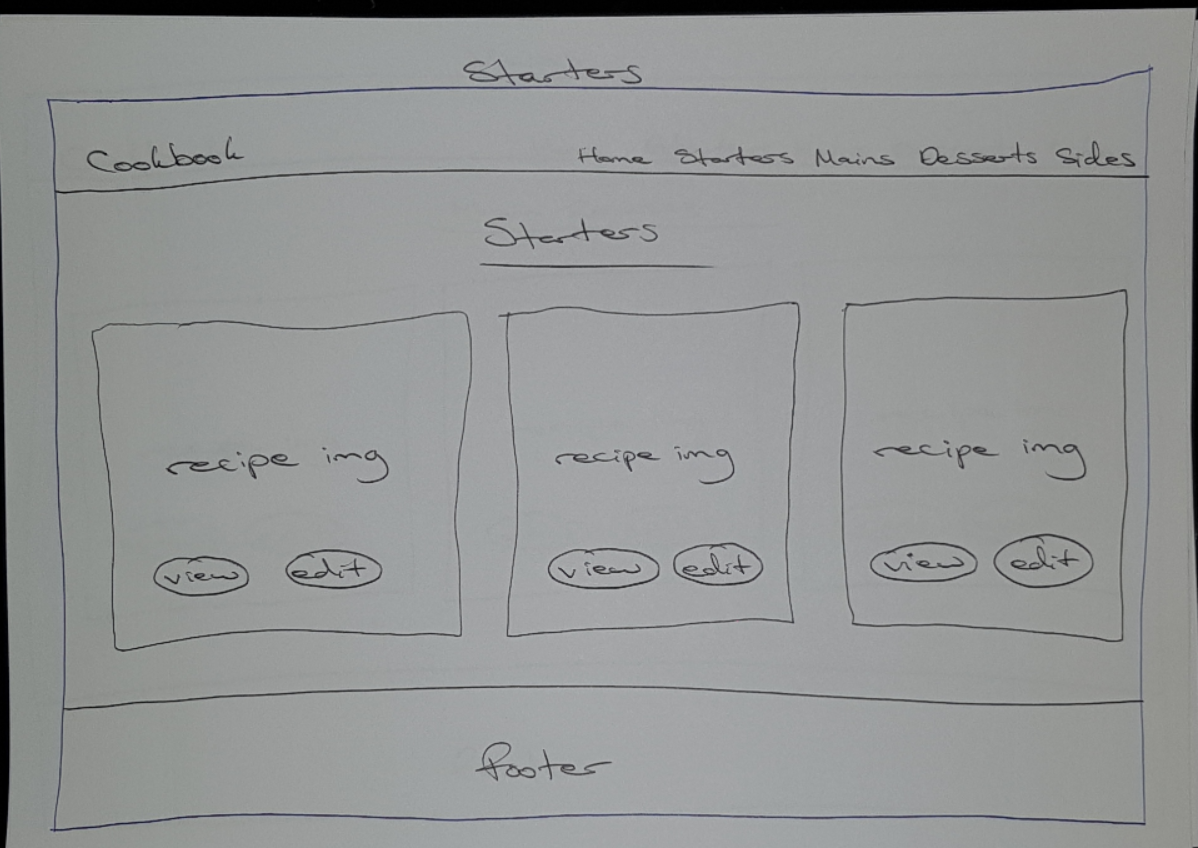 Starters
Cookbook Home Starters Mains Desserts Sides
Starters
recipe img recipe img recipe img
view edit view edit view edit
footer